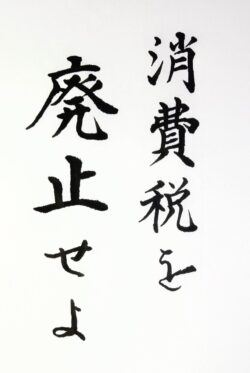 消費税を
廃止せよ